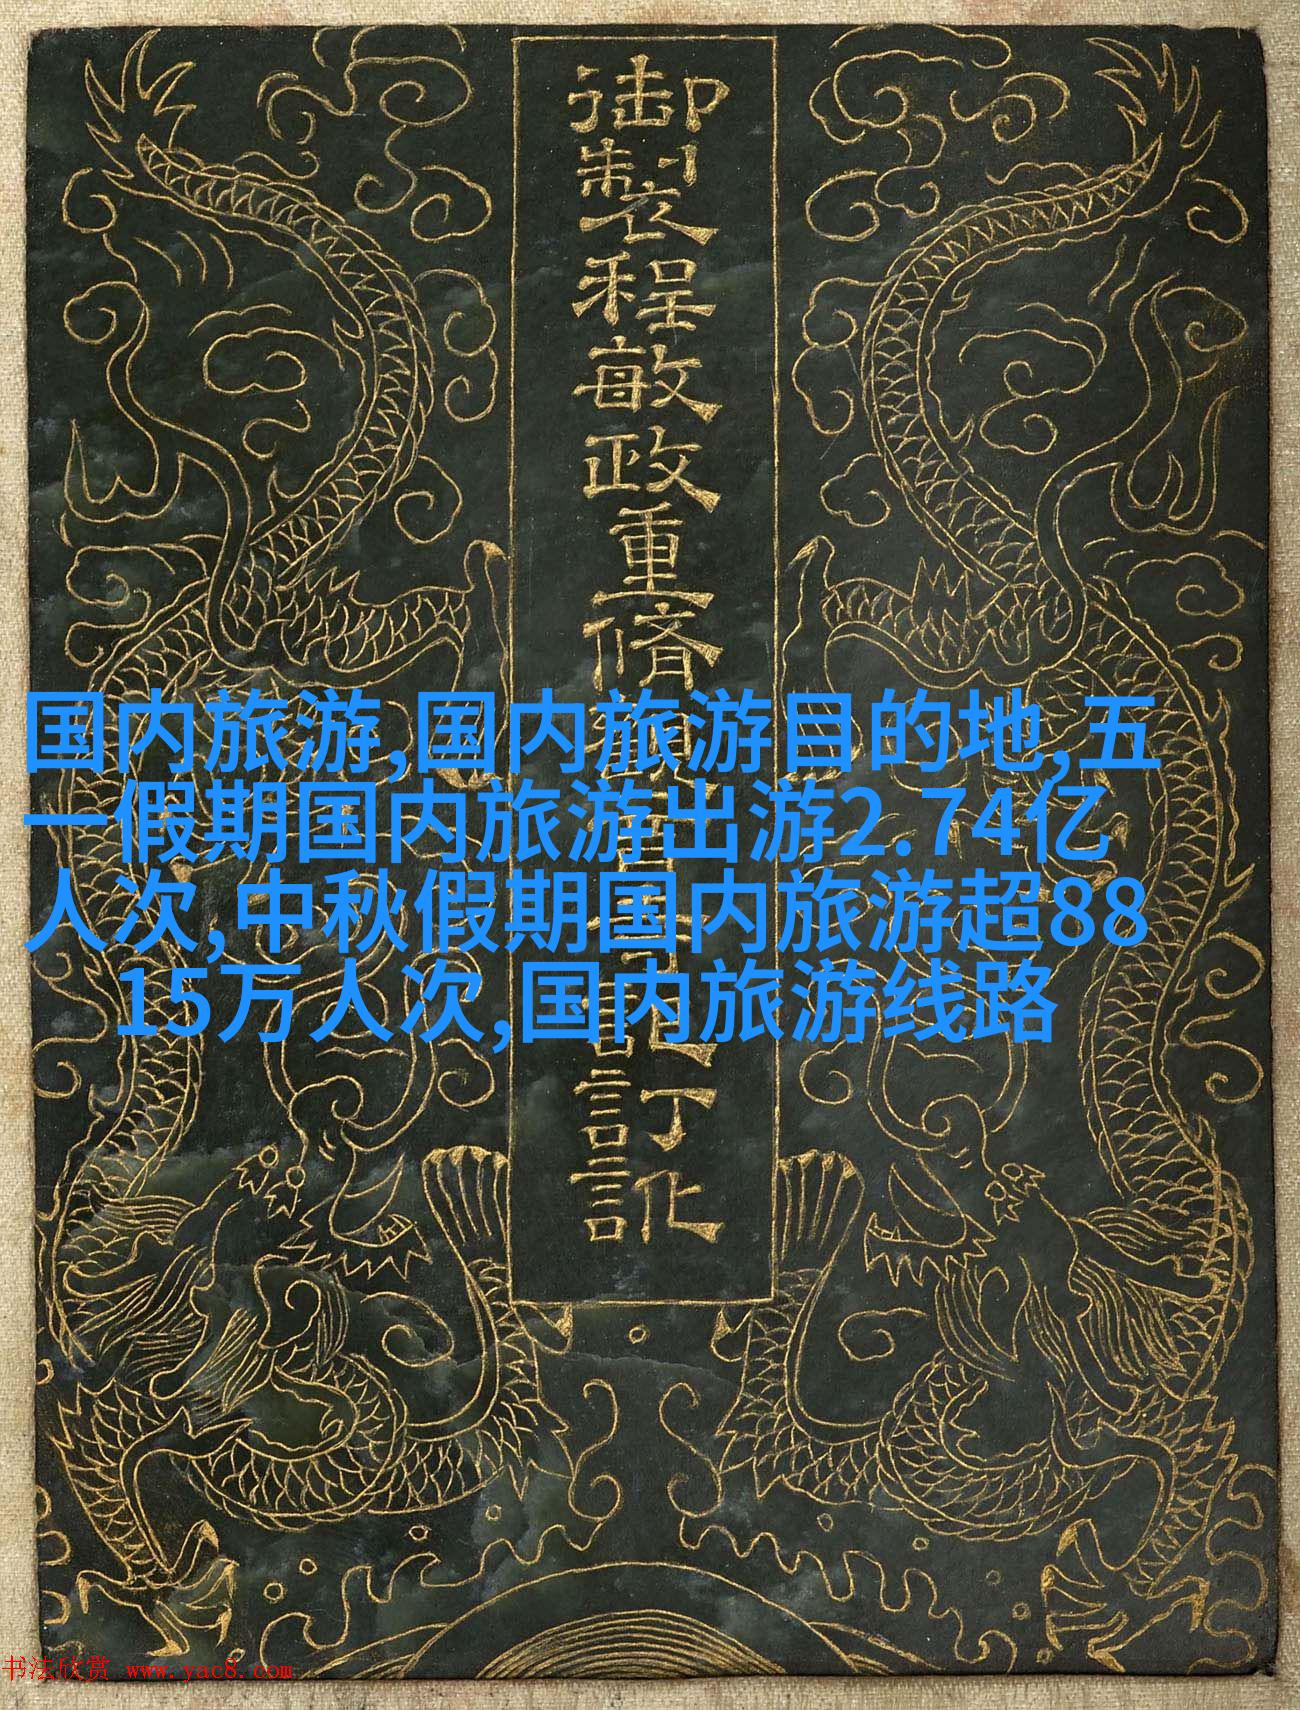 御製程敏政重脩訂訛
国内旅游,国内旅游目的地,五
一假期国内旅游出游2.74亿
人次,中秋假期国内旅游超88
15万人次,国内旅游线路
书法欣赏 www.yac8.com